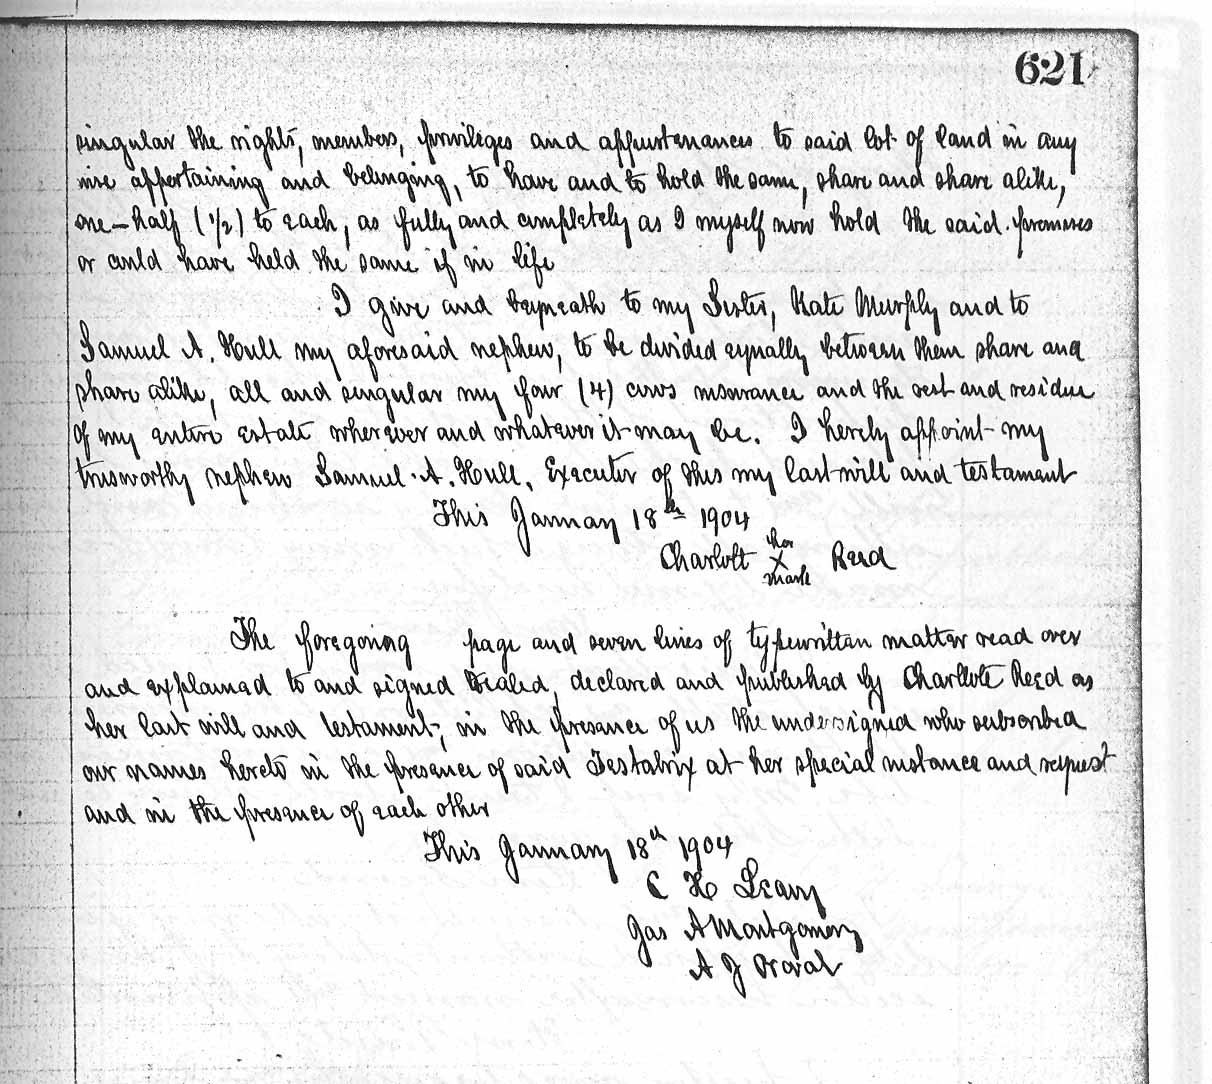 621
singular the rights, members, privileges and appurtenances to said lot of land in any
wise appertaining and belonging, to have and to hold the same, share and share alike,
one-half (1/2) to each, as fully and completely as I myself now hold the said premises
or could have held the same if in life
I give and bequeath to my Sister, Kate Murphy and to
Samuel A. Hull my aforesaid nephew, to be divided equally between them share and
share alike, all and singular my four (4) cows insurance and the rest and residue
of my entire estate wherever and whatever it may be. I hereby appoint my
trusworthy nephew Samuel A. Hull, Executor of this my last will and testament
This January 18th 1904
Charlott her x mark Reed
The foregoing page and seven lines of typewritten matter read over
and explained to and signed sealed, declared and published by Charllote Reed as
her last will and testament, in the presence of us the undersigned who subscribed
our names hereto in the presence of said Testatrix at her special instance and request
and in the presence of each other
This January 18th 1904
C H
Jas A Montgomery
A J